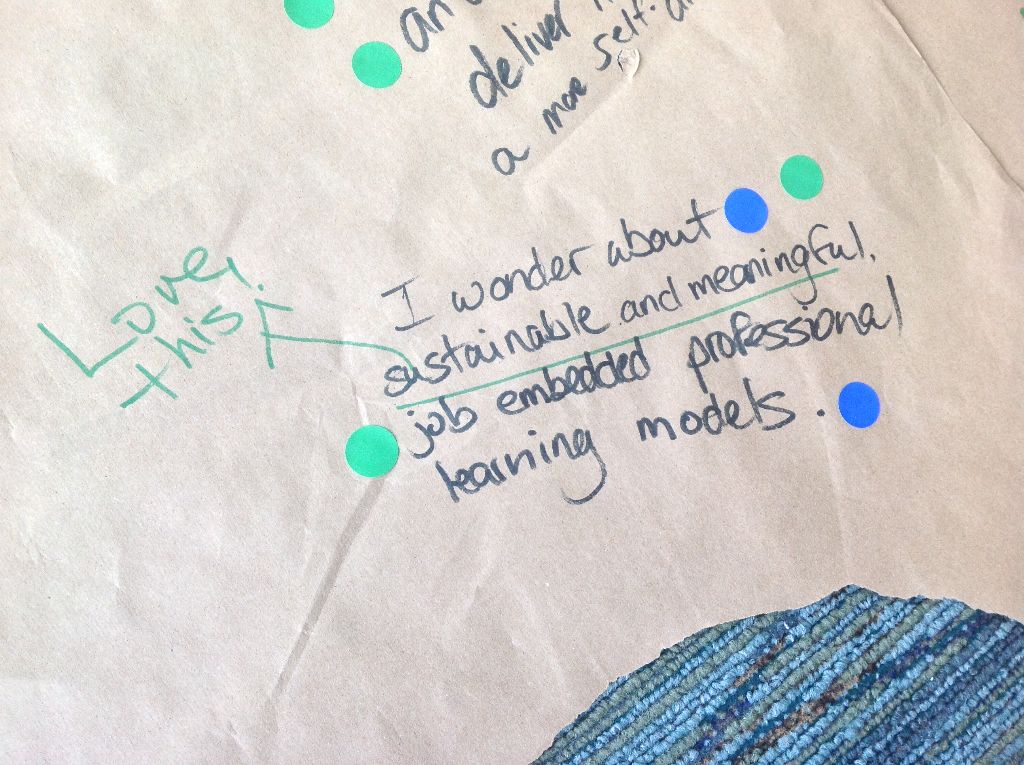 deliver
a more self-
I wonder about
sustainable and meaningful.
job embedded professional
learning models.
Love
this